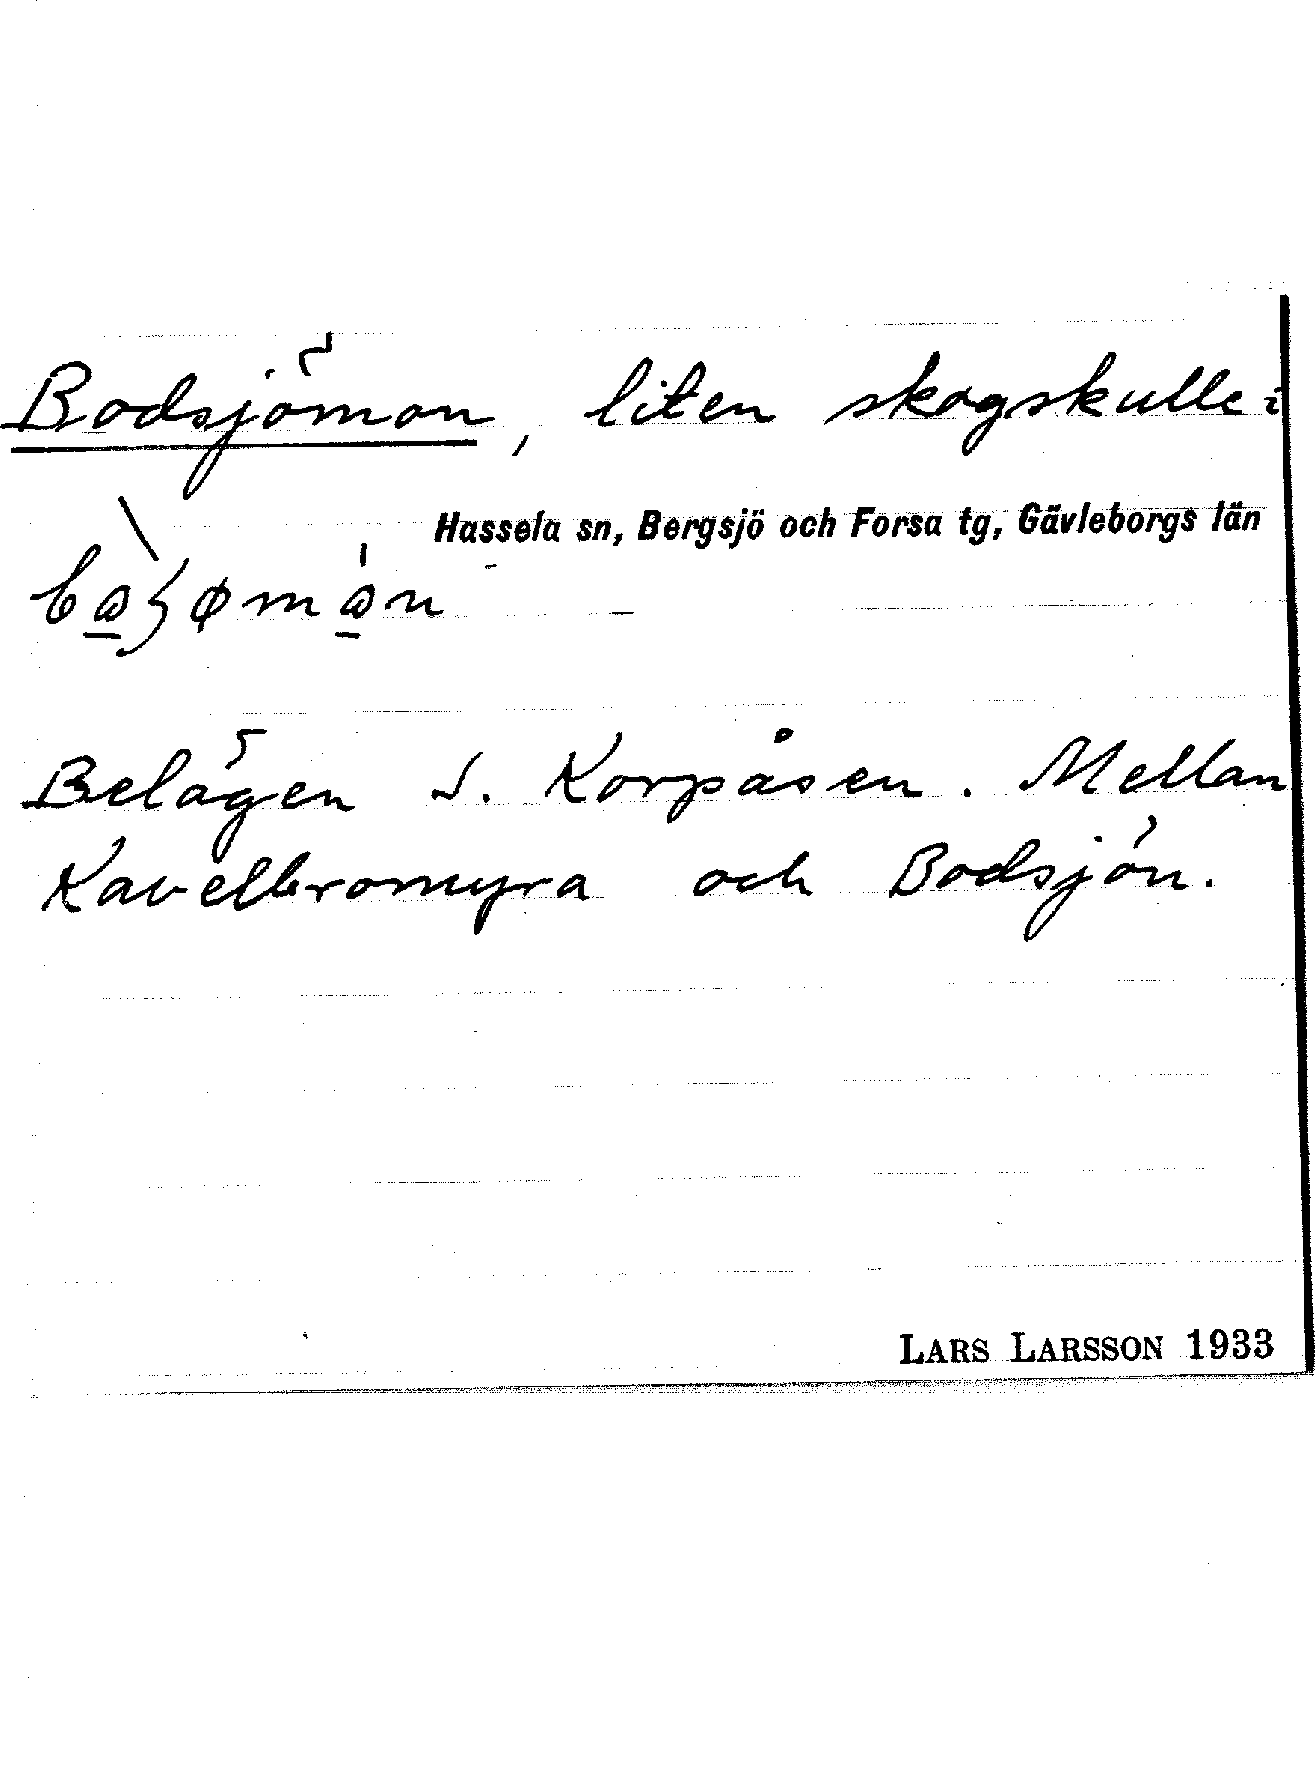 Bodsjömon, liten skogskulle i
Hassela sn, Bergsjö och Forsa tg, Gävleborgs län
Belägen S. Korpåsen. Mellan
Kavelbromyra och Bodsjön.
LARS LARSSON 1933